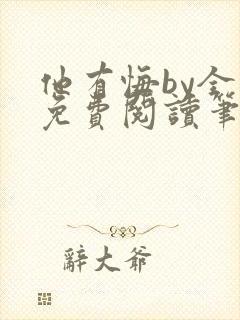 他有悔by金
免費閱讀筆
辭大爺